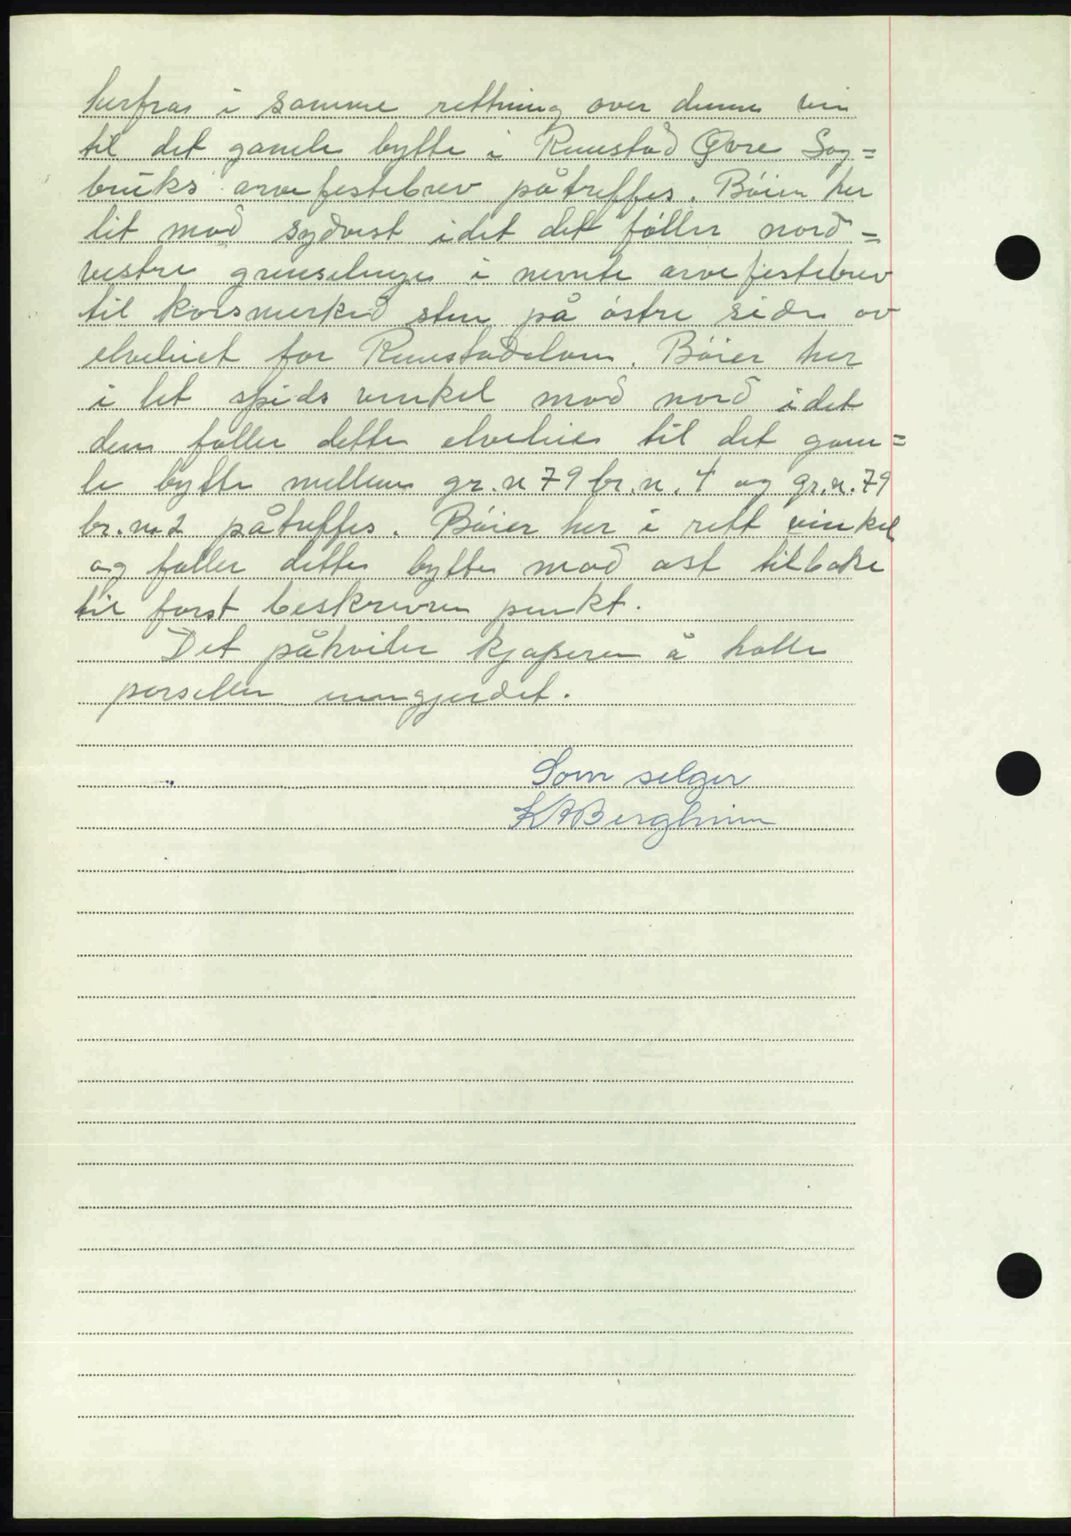 herfra i samme rettning over denne
til det gamle bytte i Ruustad Øvre Sag=
bruks arvefestebrev påtreffes. Bøier her
lit mod sydvest idet det føller nord=
vestre grenselinje i nevnte arvefestebrev
til korsmerked sten på østre side av
elveleiet for Ruustadelven. Bøier her
i let spids vinkel mod nord idet
den føller dette elveleie til det gam=
le bytte mellem gr.n 79 br.n. 4 og gr.n. 79
br.n. 2 påtreffes. Bøier her i rett vinkel
og føller dette bytte mod øst tilbake
til først beskrevne punkt.
Det påhviler kjøperen å holle
parsellen inngjerdet.
Som selger
K A Bergheim